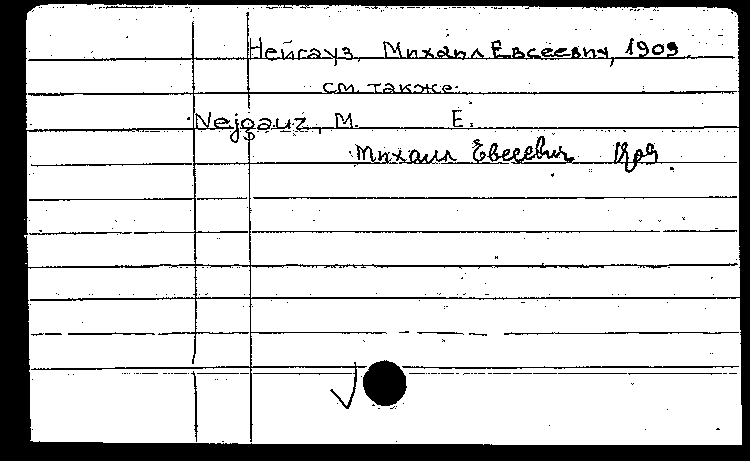 Нейгауз, Михаил Евсеевич, 1909
см. также:
Nejgauz, M. E.
Михаил Евсеевич 1909